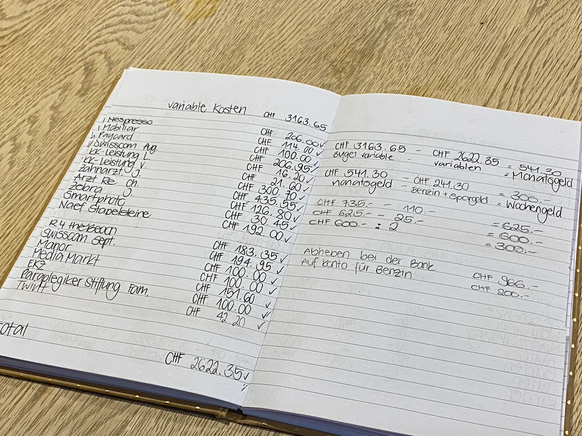 variable Kosten CHF 3163.65
Nespresso CHF 206.00 ✓
Mobiliar CHF 114.00 ✓
Paycard CHF 100.00 ✓
Swisscom Aug. CHF 206.95 ✓
KK-Leistung L. CHF 16.20 ✓
KK-Leistung V. CHF 21.60 ✓
Zahnarzt J CHF 300.70 ✓
Arzt Re. Ch. CHF 435.95 ✓
Zebra J CHF 126.80 ✓
Smartphoto CHF 30.45 ✓
Naef Stapelsteine CHF 192.00 ✓
CHF 183.35 ✓
Swisscom Sept. CHF 194.95 ✓
Manor CHF 100.00 ✓
Media Markt CHF 100.00 ✓
EKZ CHF 151.60 ✓
Paraplegiker Stiftung Fam. CHF 100.00 ✓
Twint CHF 42.20 ✓
Total CHF 2622.35 ✓
CHF 3163.65 - CHF 2622.35 = 541.30
Buget variable variablen Monatsgeld
CHF 541.30 - CHF 241.30 = 300.-
Monatsgeld Benzin + Spargeld = Wochengeld
CHF 735.- - 110.- = 625.-
CHF 625.- - 25.- = 600.-
CHF 600.- : 2 = 300.-
Abheben bei der Bank CHF 966.-
Auf Konto für Benzin CHF 200.-